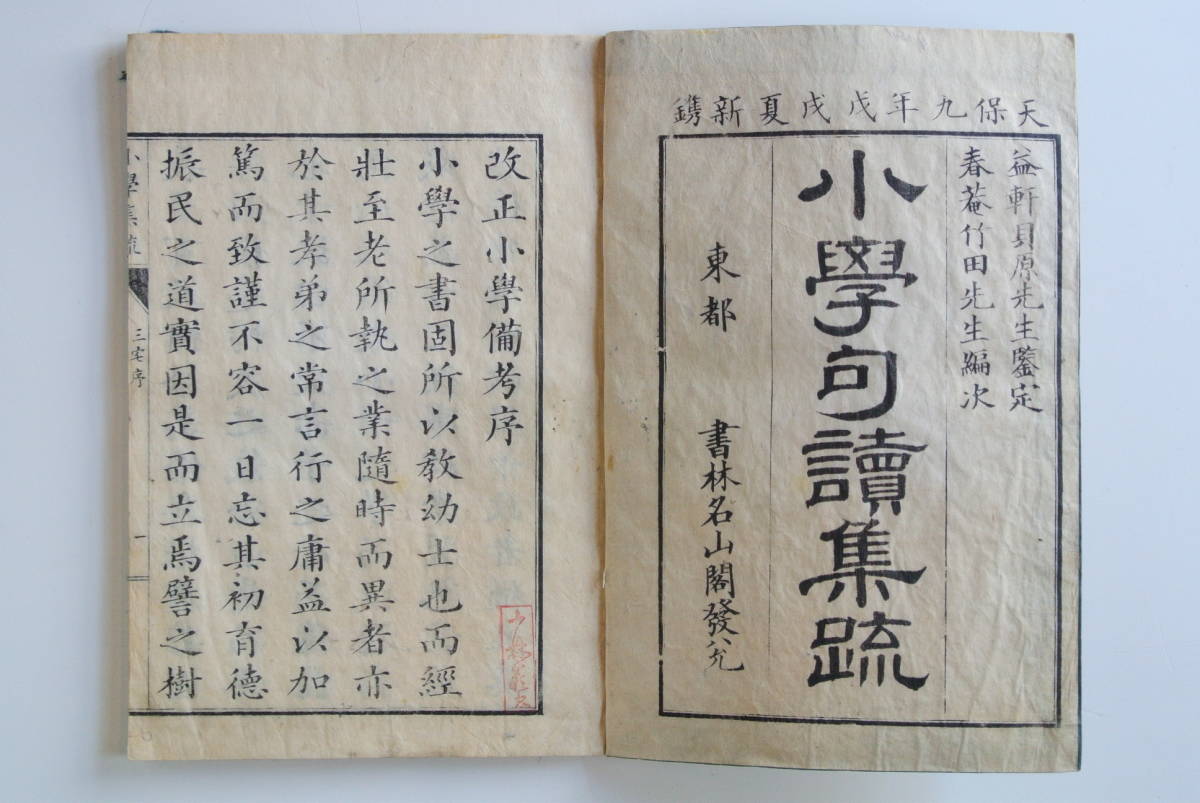 天保九年戊戌夏新鐫
益軒貝原先生鑒定
春菴竹田先生編次
小學句讀集疏
東都 書林名山閣發兌
改正小學備考序
小學之書固所以教幼士也而經
壯至老所執之業隨時而異者亦
於其孝弟之常言行之庸益以加
篤而致謹不容一日忘其初育德
振民之道實因是而立焉譬之樹
小學集疏
三宅序
一